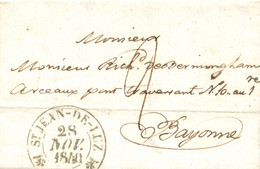 Monsieur
Monsieur Rich. de Bermingham
Arceaux port traversant N. 10 au 1re
Bayonne
ST JEAN-DE-LUZ
28
NOV.